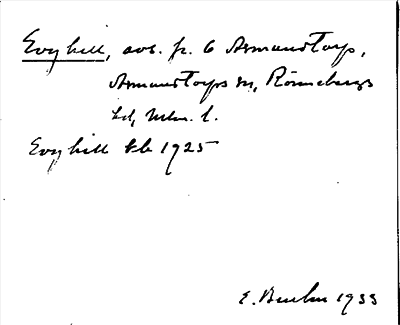 Evghill, avs. fr. 6 Asmundtorp,
Asmundtorps sn, Rönnebergs
hd, Mlm. l.
Evghill Ek 1925
E. Bruhn 1933